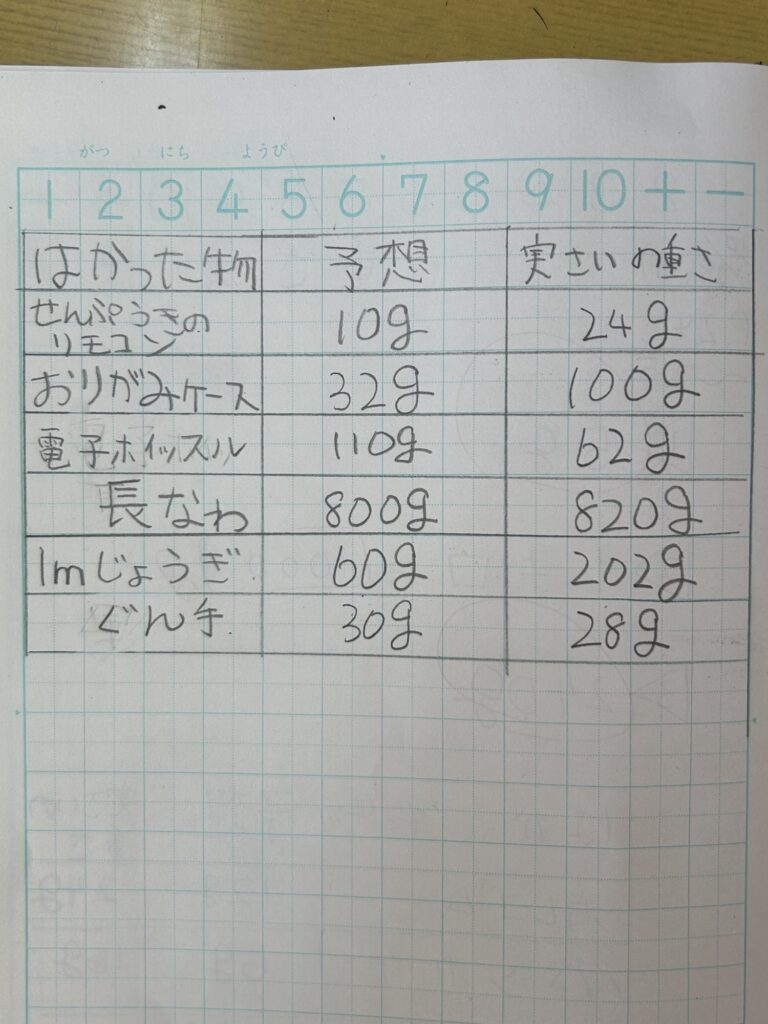 がつ にち ようび
1 2 3 4 5 6 7 8 9 10 + −
はかった物 予想 実さいの重さ
せんぷうきの
リモコン 10g 24g
おりがみケース 32g 100g
電子ホイッスル 110g 62g
長なわ 800g 820g
1mじょうぎ 60g 202g
ぐん手 30g 28g